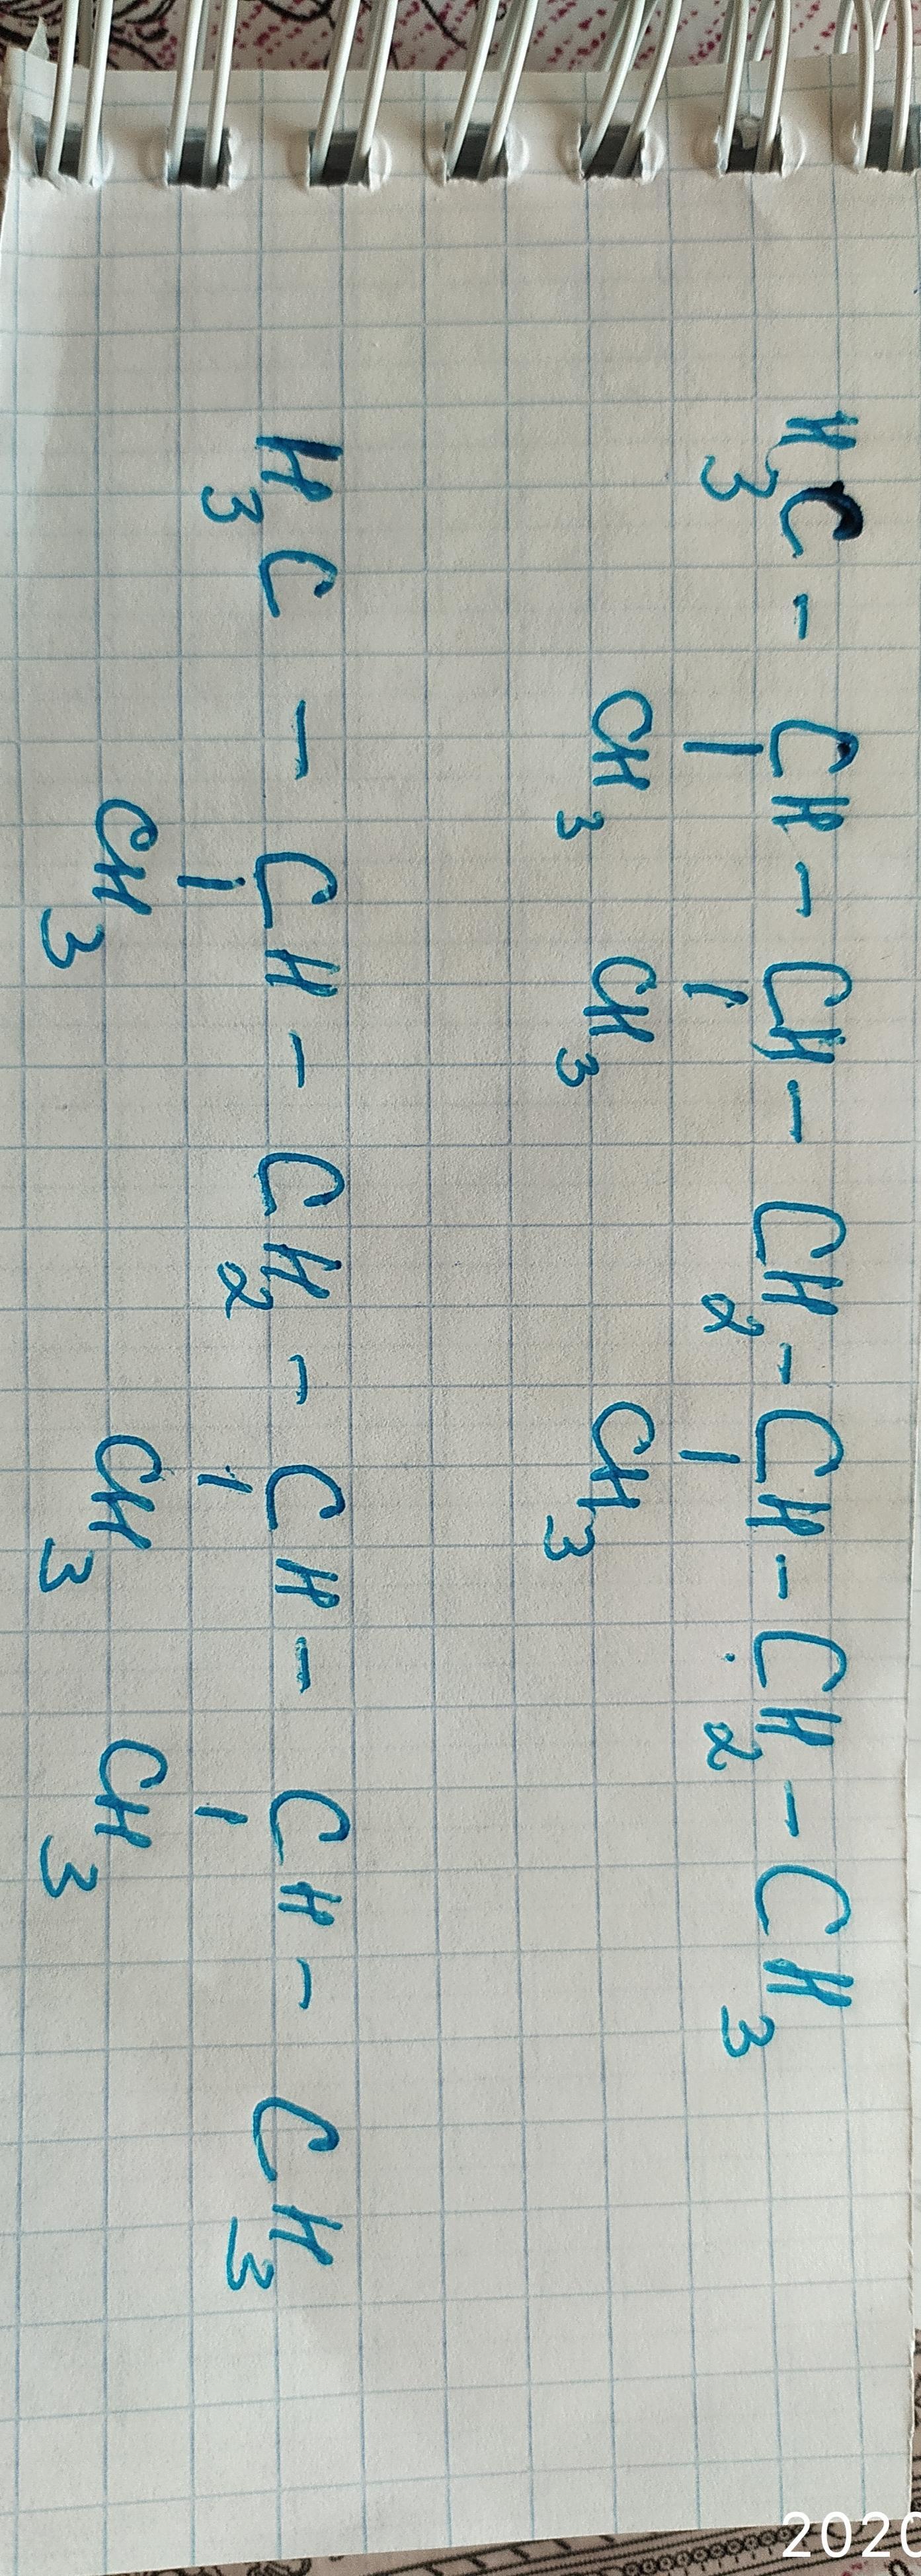 H3C - CH - CH - CH2 - CH - CH2 - CH3
CH3 CH3 CH3
H3C - CH - CH2 - CH - CH - CH3
CH3 CH3 CH3
2020